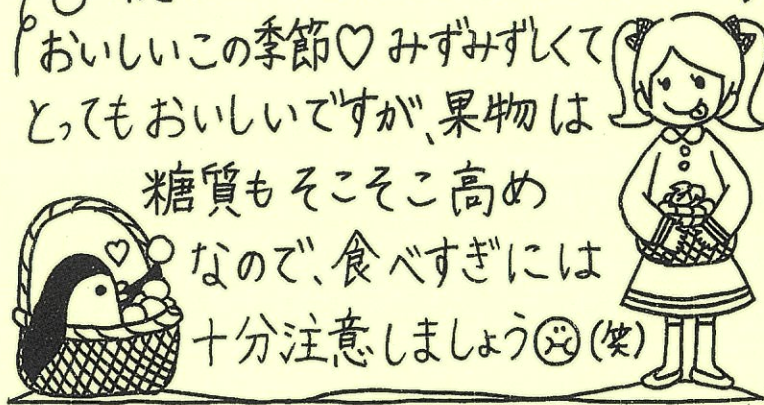 おいしいこの季節♡ みずみずしくて
とってもおいしいですが、果物は
糖質もそこそこ高め
なので、食べすぎには
十分注意しましょう☹(笑)